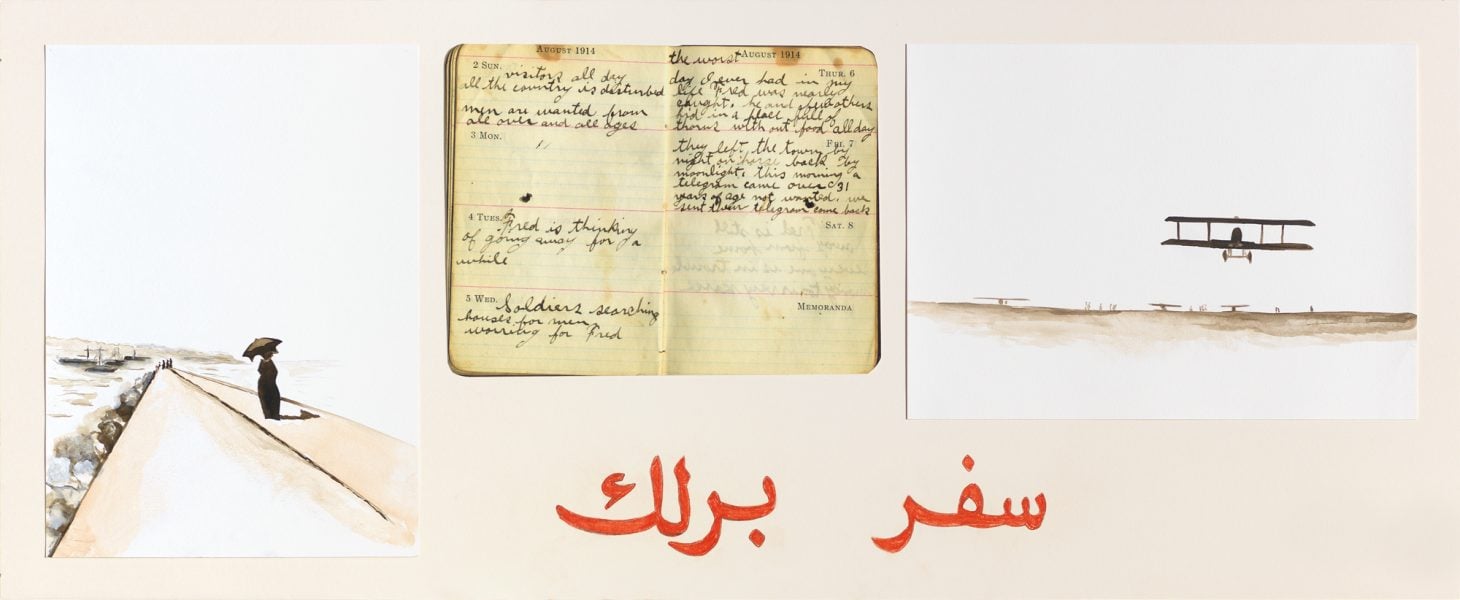 August 1914
2 Sun. visitors all day
all the country is disturbed
men are wanted from
all over and all ages
3 Mon.
4 Tues. Fred is thinking
of going away for a
while
5 Wed. Soldiers searching
houses for men
for Fred
the worst August 1914
Thur. 6
day I ever had in my
life Fred was nearly
caught. he and others
hid in a place full of
thorns with out food all day
Fri. 7
they left the town by
night on horse back by
moonlight. this morning a
telegram came over 31
years of age not wanted. we
sent telegram come back
Sat. 8
Memoranda
سفر برلك